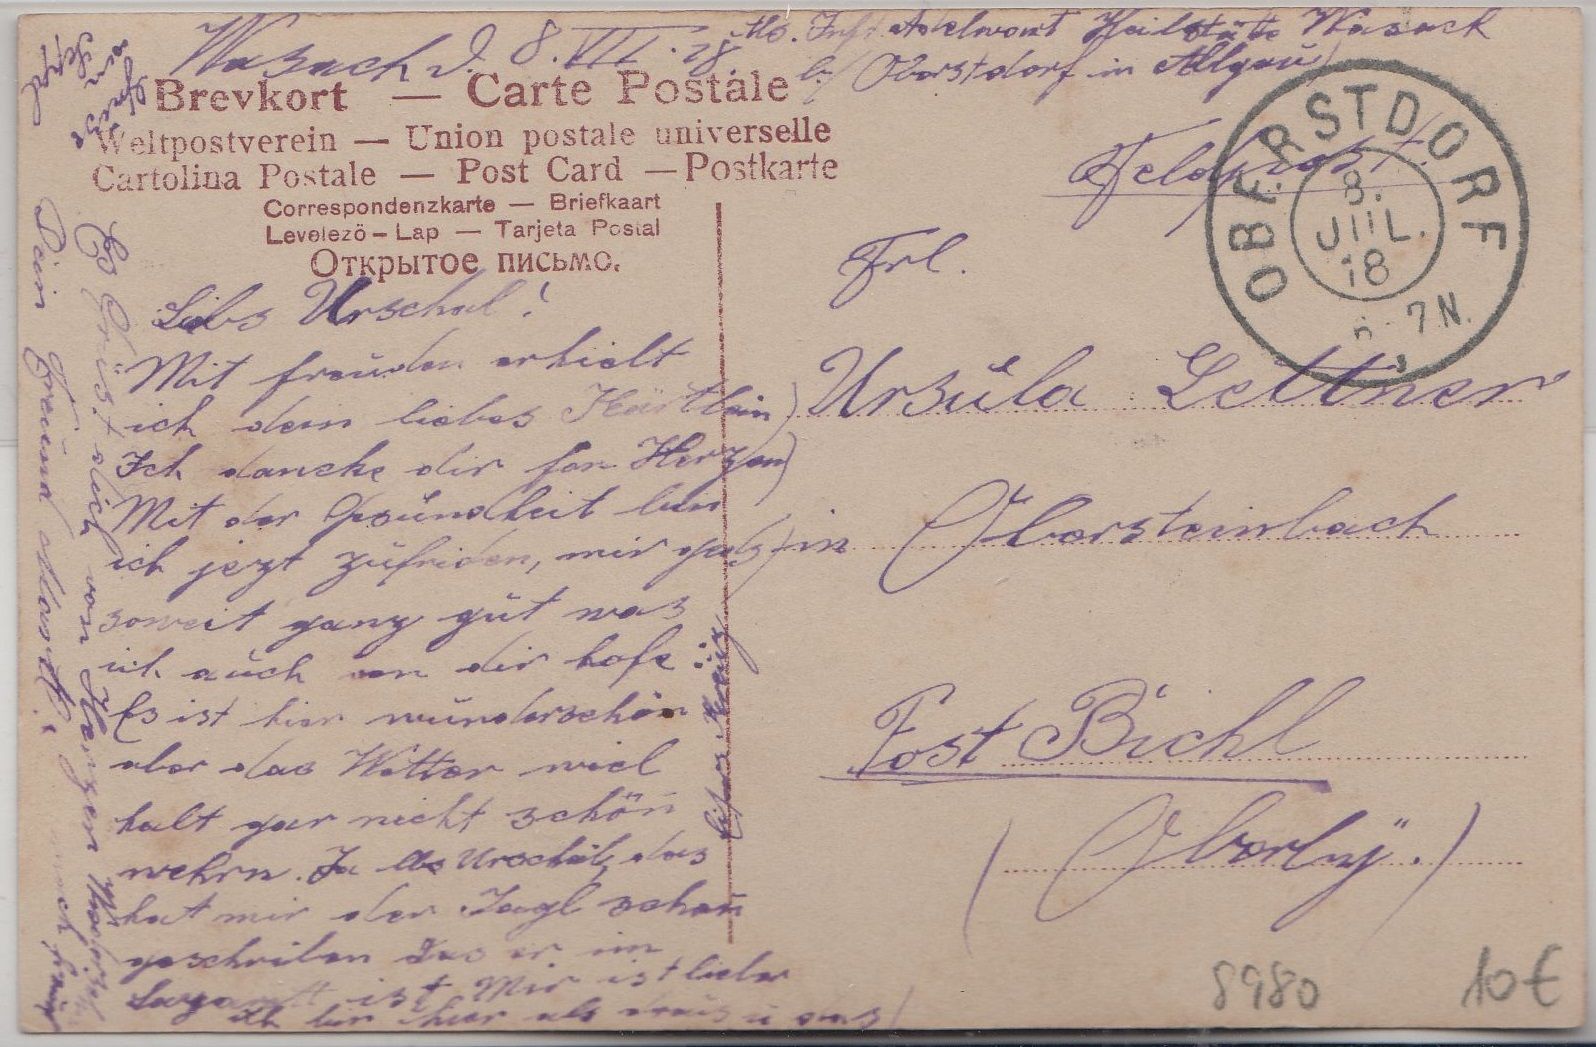 Wasach d. 8. VII. 18.
Ms. Inft. Adelwart Heilstätte Wasack
b/ Oberstdorf in Allgäu)
Brevkort — Carte Postale
Weltpostverein — Union postale universelle
Cartolina Postale — Post Card — Postkarte
Correspondenzkarte — Briefkaart
Levelező-Lap — Tarjeta Postal
Открытое письмо.
OBERSTDORF
8.
JUL.
18
7 N.
Feldpost.
Frl.
Ursula Lettner
in Obersteinbach
Post Bichl
(Oberby.)
Liebs Urschal!
Mit freuden erhielt
ich dein liebes Kärtlein)
Ich dancke dir fon Herzen)
Mit der Gsundheit bin
ich jezt zufriden, mir geds
soweit ganz gut was
ich auch von dir hofe
Es ist hier wunderschön
aber das Wetter wiel
halt gar nicht schön
wehrn. Ja Urschal, das
hat mir der Jagl schon
geschriben das er im
Lazarett ist Mir ist lieber
ich bin hier als draus u das)
Es Grüst dich von Herzen
Dein Freund